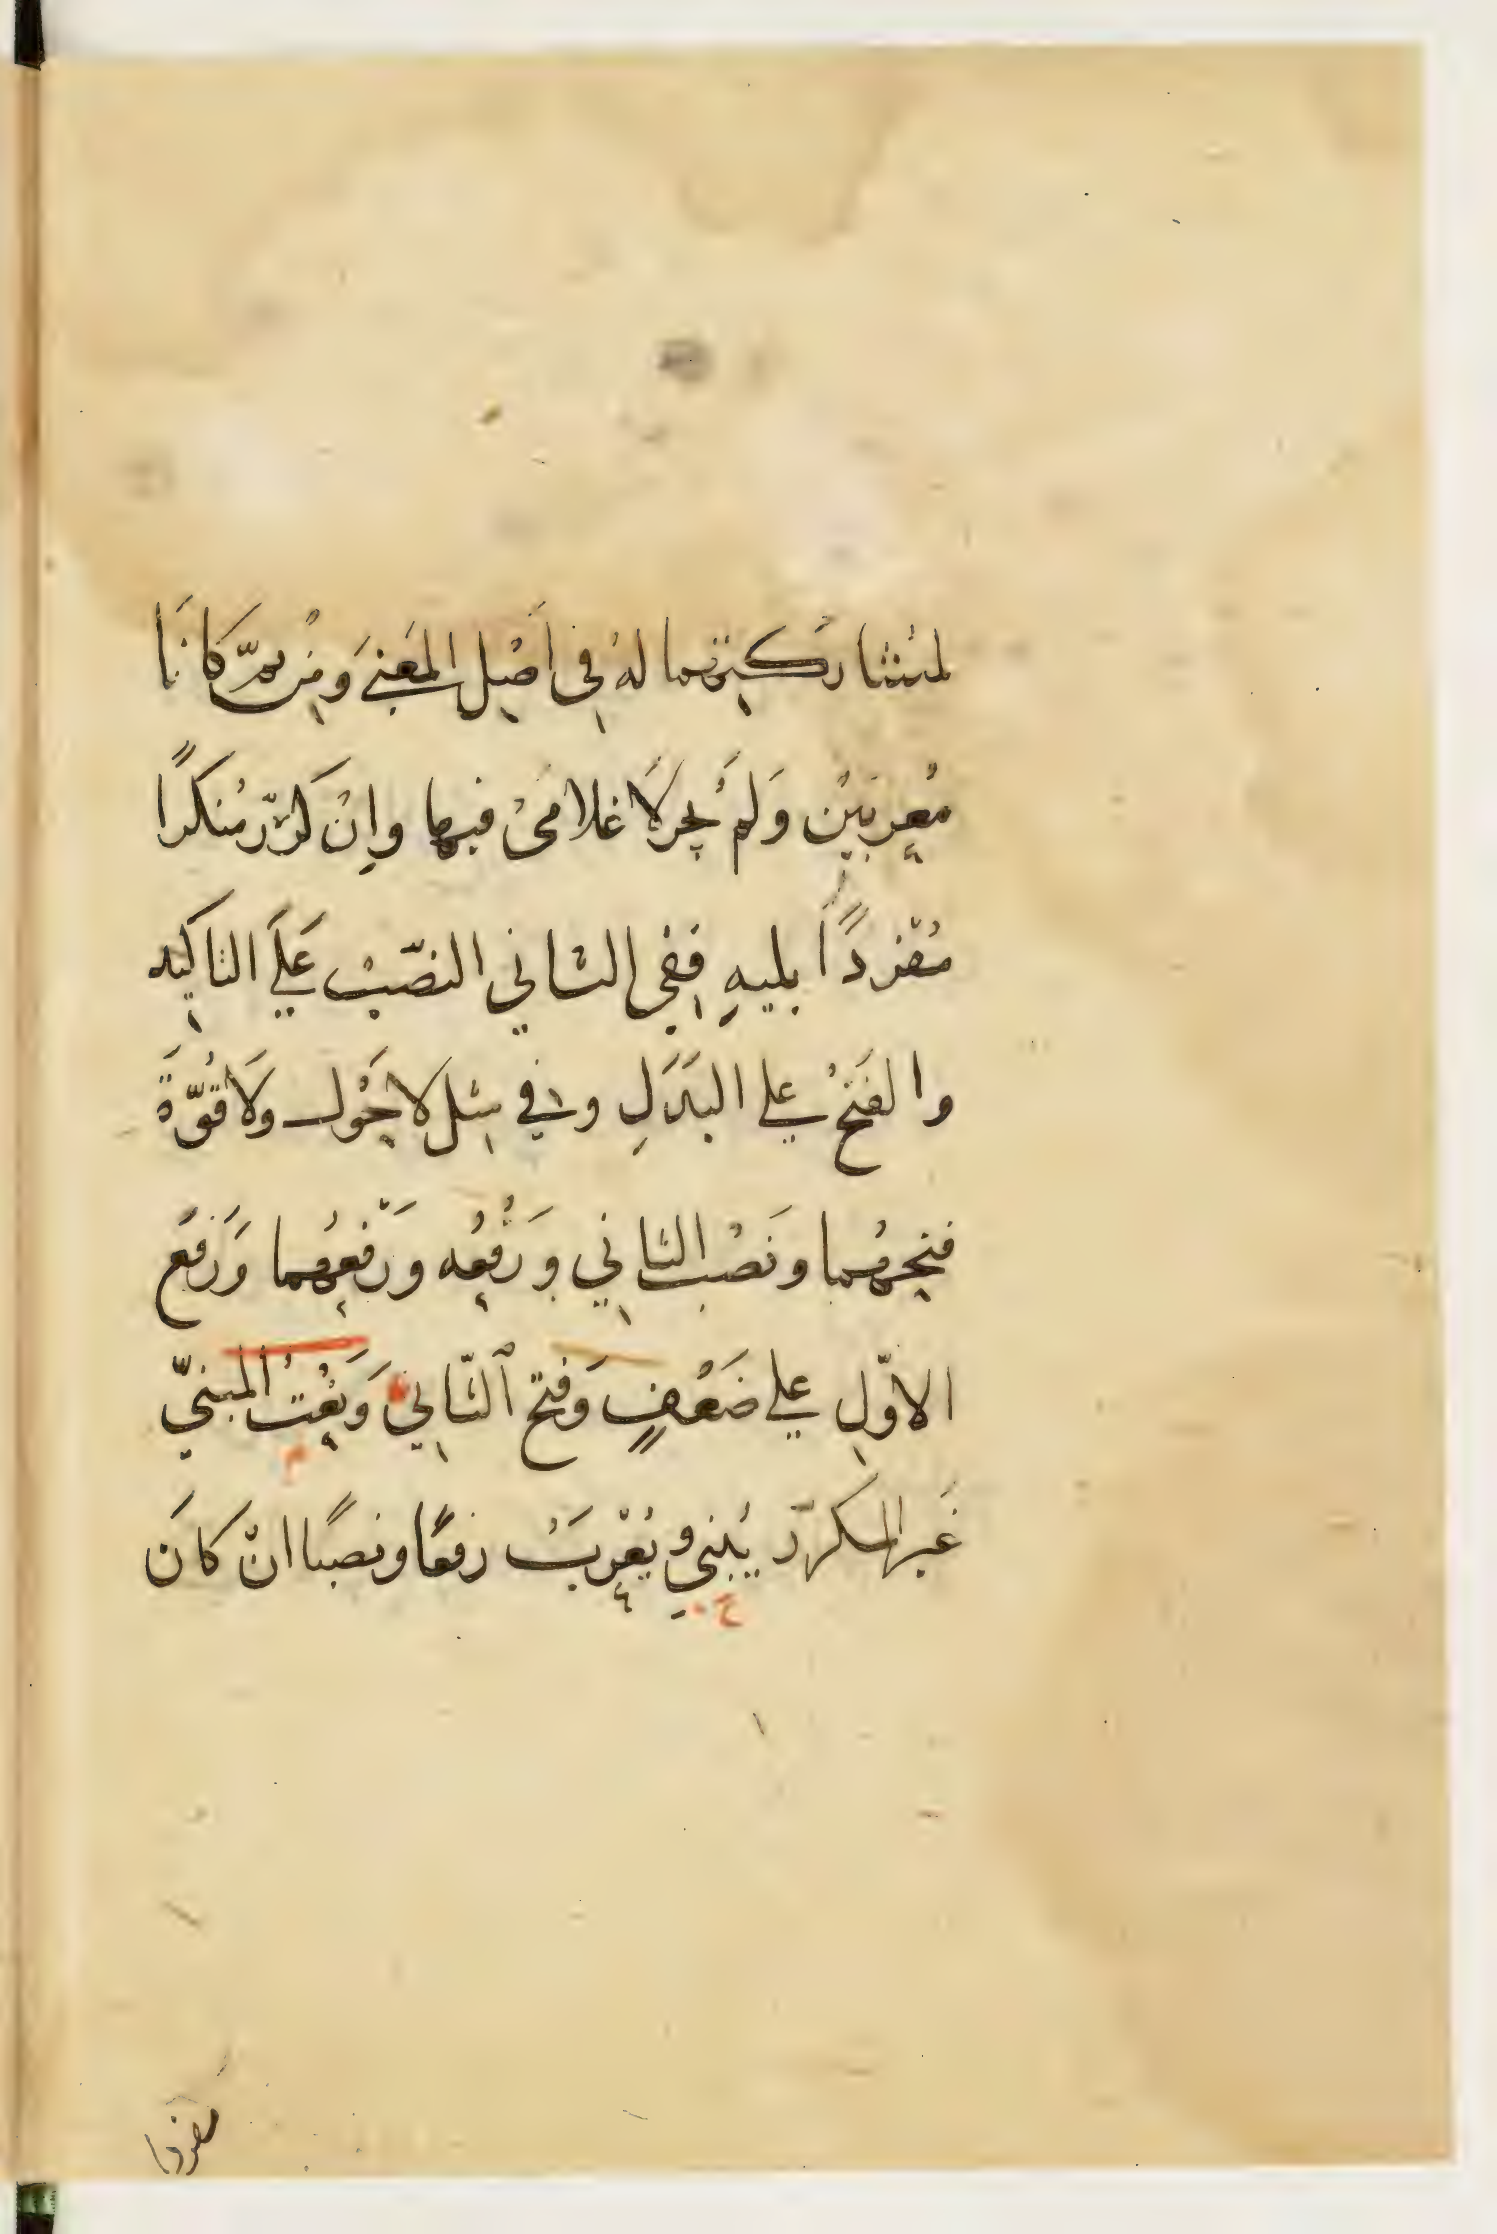 لمُشاركتهما لهُ في اَصْلِ المعَنىَ وَمِنْ ثمّ كانَا
مُعرِبَيْن وَلَمْ يجر لاَ غلامىْ فيها وإنْ كرّر مُنكرًا
مُفردًا يليهِ ففِي الثاني النصّبْ عَلَى التاكيد
والفَتحْ على البَدَلِ وفي مثل لا حَوْل ولَا قُوّةَ
فتحهُما ونَصْب الثاني وَرفْعُه ورَفعهُما وَرَفع
الاوّلِ على ضَعْفٍ وَفتح الثّاني وَنعْتُ المبنيّ
غَير المكرّر يُبنى ويُعْرَبُ رفعًا ونصبًا انْ كانَ
مفردا